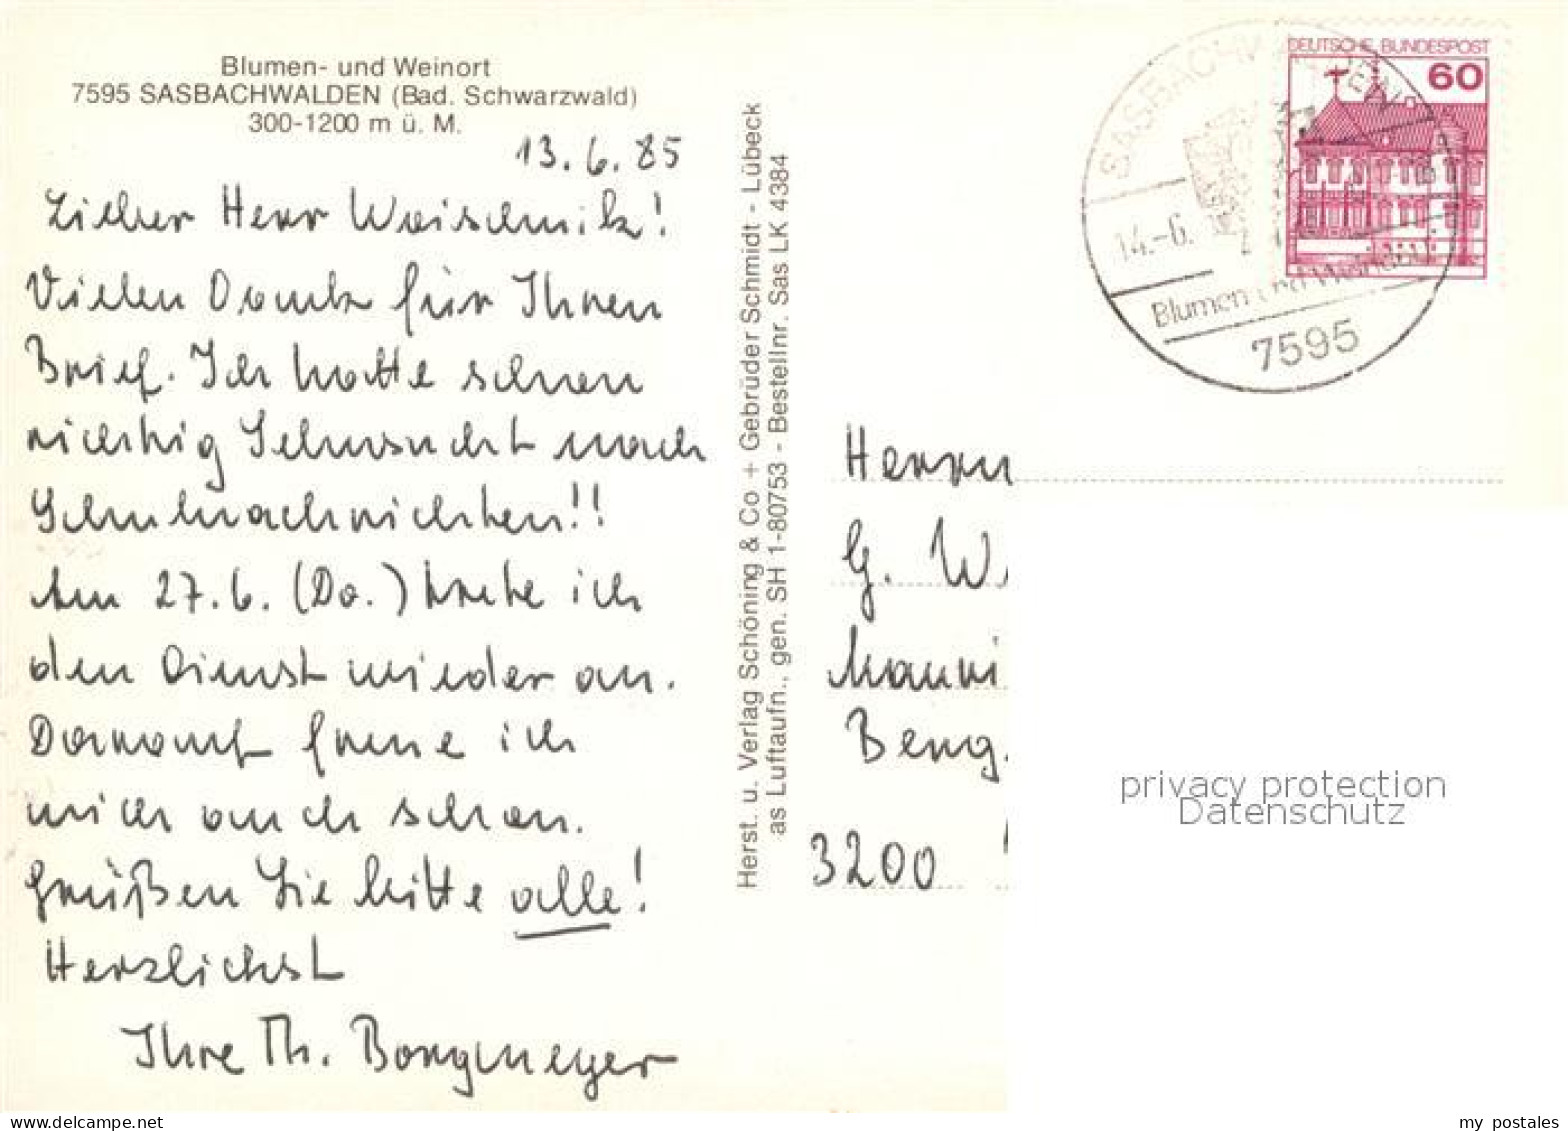 Blumen- und Weinort
7595 SASBACHWALDEN (Bad. Schwarzwald)
300-1200 m ü. M.
13.6.85
Lieber Herr
Vielen Dank für Ihren
Brief. Ich hatte schon
richtig Sehnsucht nach
Schulnachrichten!!
Am 27.6. (Do.) trete ich
den Dienst wieder an.
Darauf freue ich
mich auch schon.
Grüßen Sie bitte alle!
Herzlichst
Ihre Th. Borgmeyer
Herst. u. Verlag Schöning & Co + Gebrüder Schmidt - Lübeck
as Luftaufn., gen. SH 1-80753 - Bestellnr. Sas LK 4384
DEUTSCHE BUNDESPOST
60
SASBACHWALDEN
14.-6.
Blumen und Weindorf
7595
Herrn
G. W
Berg
3200
privacy protection
Datenschutz
www.delcampe.net
my_postales